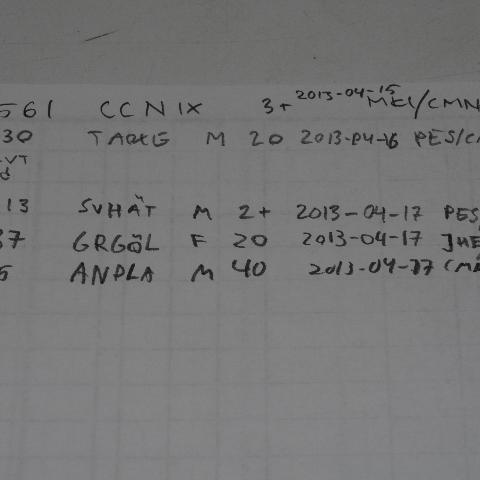 561 CCNIX 3+ 2013-04-15 MKI/CMN
30 TARKG M 20 2013-04-16 PES/C
-VT
13 SVHÄT M 2+ 2013-04-17 PES
37 GRGÖL F 20 2013-04-17 JHE
5 ANPLA M 40 2013-04-17 CMN